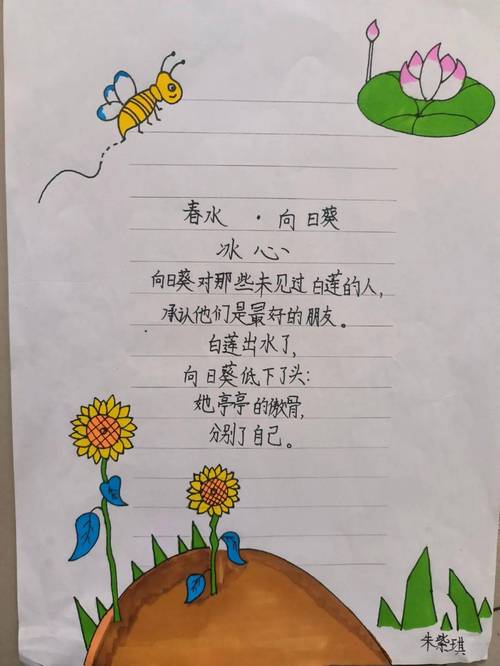 春水 · 向日葵
冰心
向日葵对那些未见过白莲的人,
承认他们是最好的朋友。
白莲出水了,
向日葵低下了头:
她亭亭的傲骨,
分别了自己。
朱紫琪